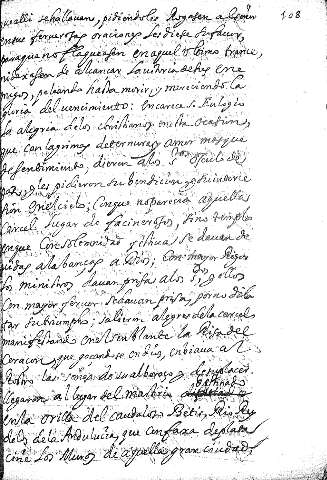 108
que alli se hallavan, pidiendoles Rogasen a
en que fervorosas oraciones se diese
para que no flaqueasen en aquel ultimo trance,
ni dexasen de alcanzar la vitoria de sus ene
migos, peleando hasta morir, y mereciendo la
gloria del vencimiento: Encarece S. Eulogio
la alegria de los christianos en esta ocasion,
que con lagrimas de ternura, y amor mas que
de sentimiento, dieron a los Stos osculo de
paz, y les pidieron su bendicion, y su interce
sion en el cielo; Conque no parecia aquella
carcel lugar de facinerosos, sino templo
en que con solemnidad y se davan de
vidas alabanças a Dios; Con mayor
los ministros davan prisa a los Stos, y ellos
con mayor fervor se davan prisa, por no dila
tar su triumpho: salieron alegres de la carcel
manifestando en el semblante la Risa del
coraçon, que goçandose en Dios, enbiava al
Rostro las señas de su alboroço, y de su placer.
llegaron al lugar del martirio destinado
en la orilla del caudaloso Betis, Rio Rey
de los de la Andalucia, que con faxa de plata
ciñe los Muros de aquella gran ciudad,